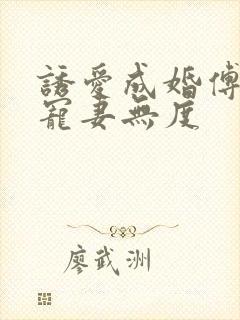 誘愛成婚傅
寵妻無度
廖武洲